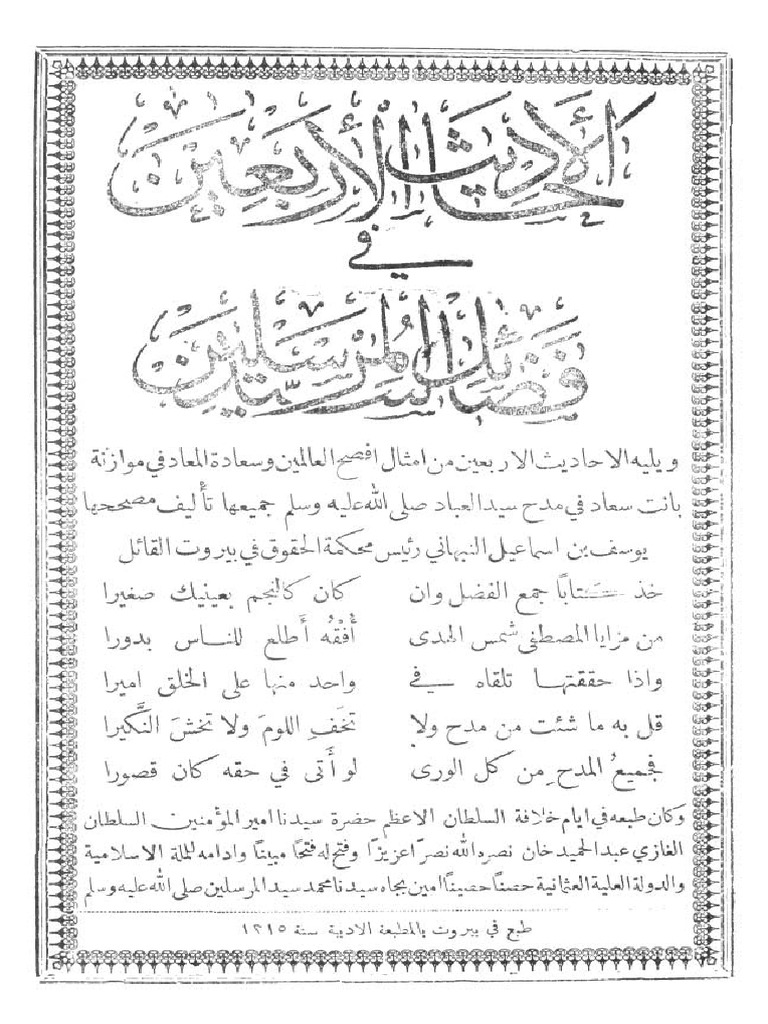 الأحاديث الأربعين
في
فضائل سيد المرسلين
ويليه الاحاديث الاربعين من امثال افصح العالمين وسعادة المعاد في موازنة
بانت سعاد في مدح سيد العباد صلى الله عليه وسلم جميعها تأليف مصححها
يوسف بن اسماعيل النبهاني رئيس محكمة الحقوق في بيروت القائل
خذ كتابًا جمع الفضل وان كان كالنجم بعينيك صغيرا
من مزايا المصطفى شمس الهدى أُفْقُه أَطلع للناس بدورا
واذا حققتها تلقاه في واحد منها على الخلق اميرا
قل به ما شئت من مدح ولا تخَفِ اللومَ ولا تخشَ النَّكيرا
فجميعُ المدحِ من كل الورى لو أَتى في حقه كان قصورا
وكان طبعه في ايام خلافة السلطان الاعظم حضرة سيدنا امير المؤمنين السلطان
الغازي عبد الحميد خان نصره الله نصرًا عزيزًا وفتح له فتحًا مبينًا وادامه للملة الاسلامية
والدولة العلية العثمانية حصنًا حصينًا امين بجاه سيدنا محمد سيد المرسلين صلى الله عليه وسلم
طبع في بيروت بالمطبعة الادبية سنة